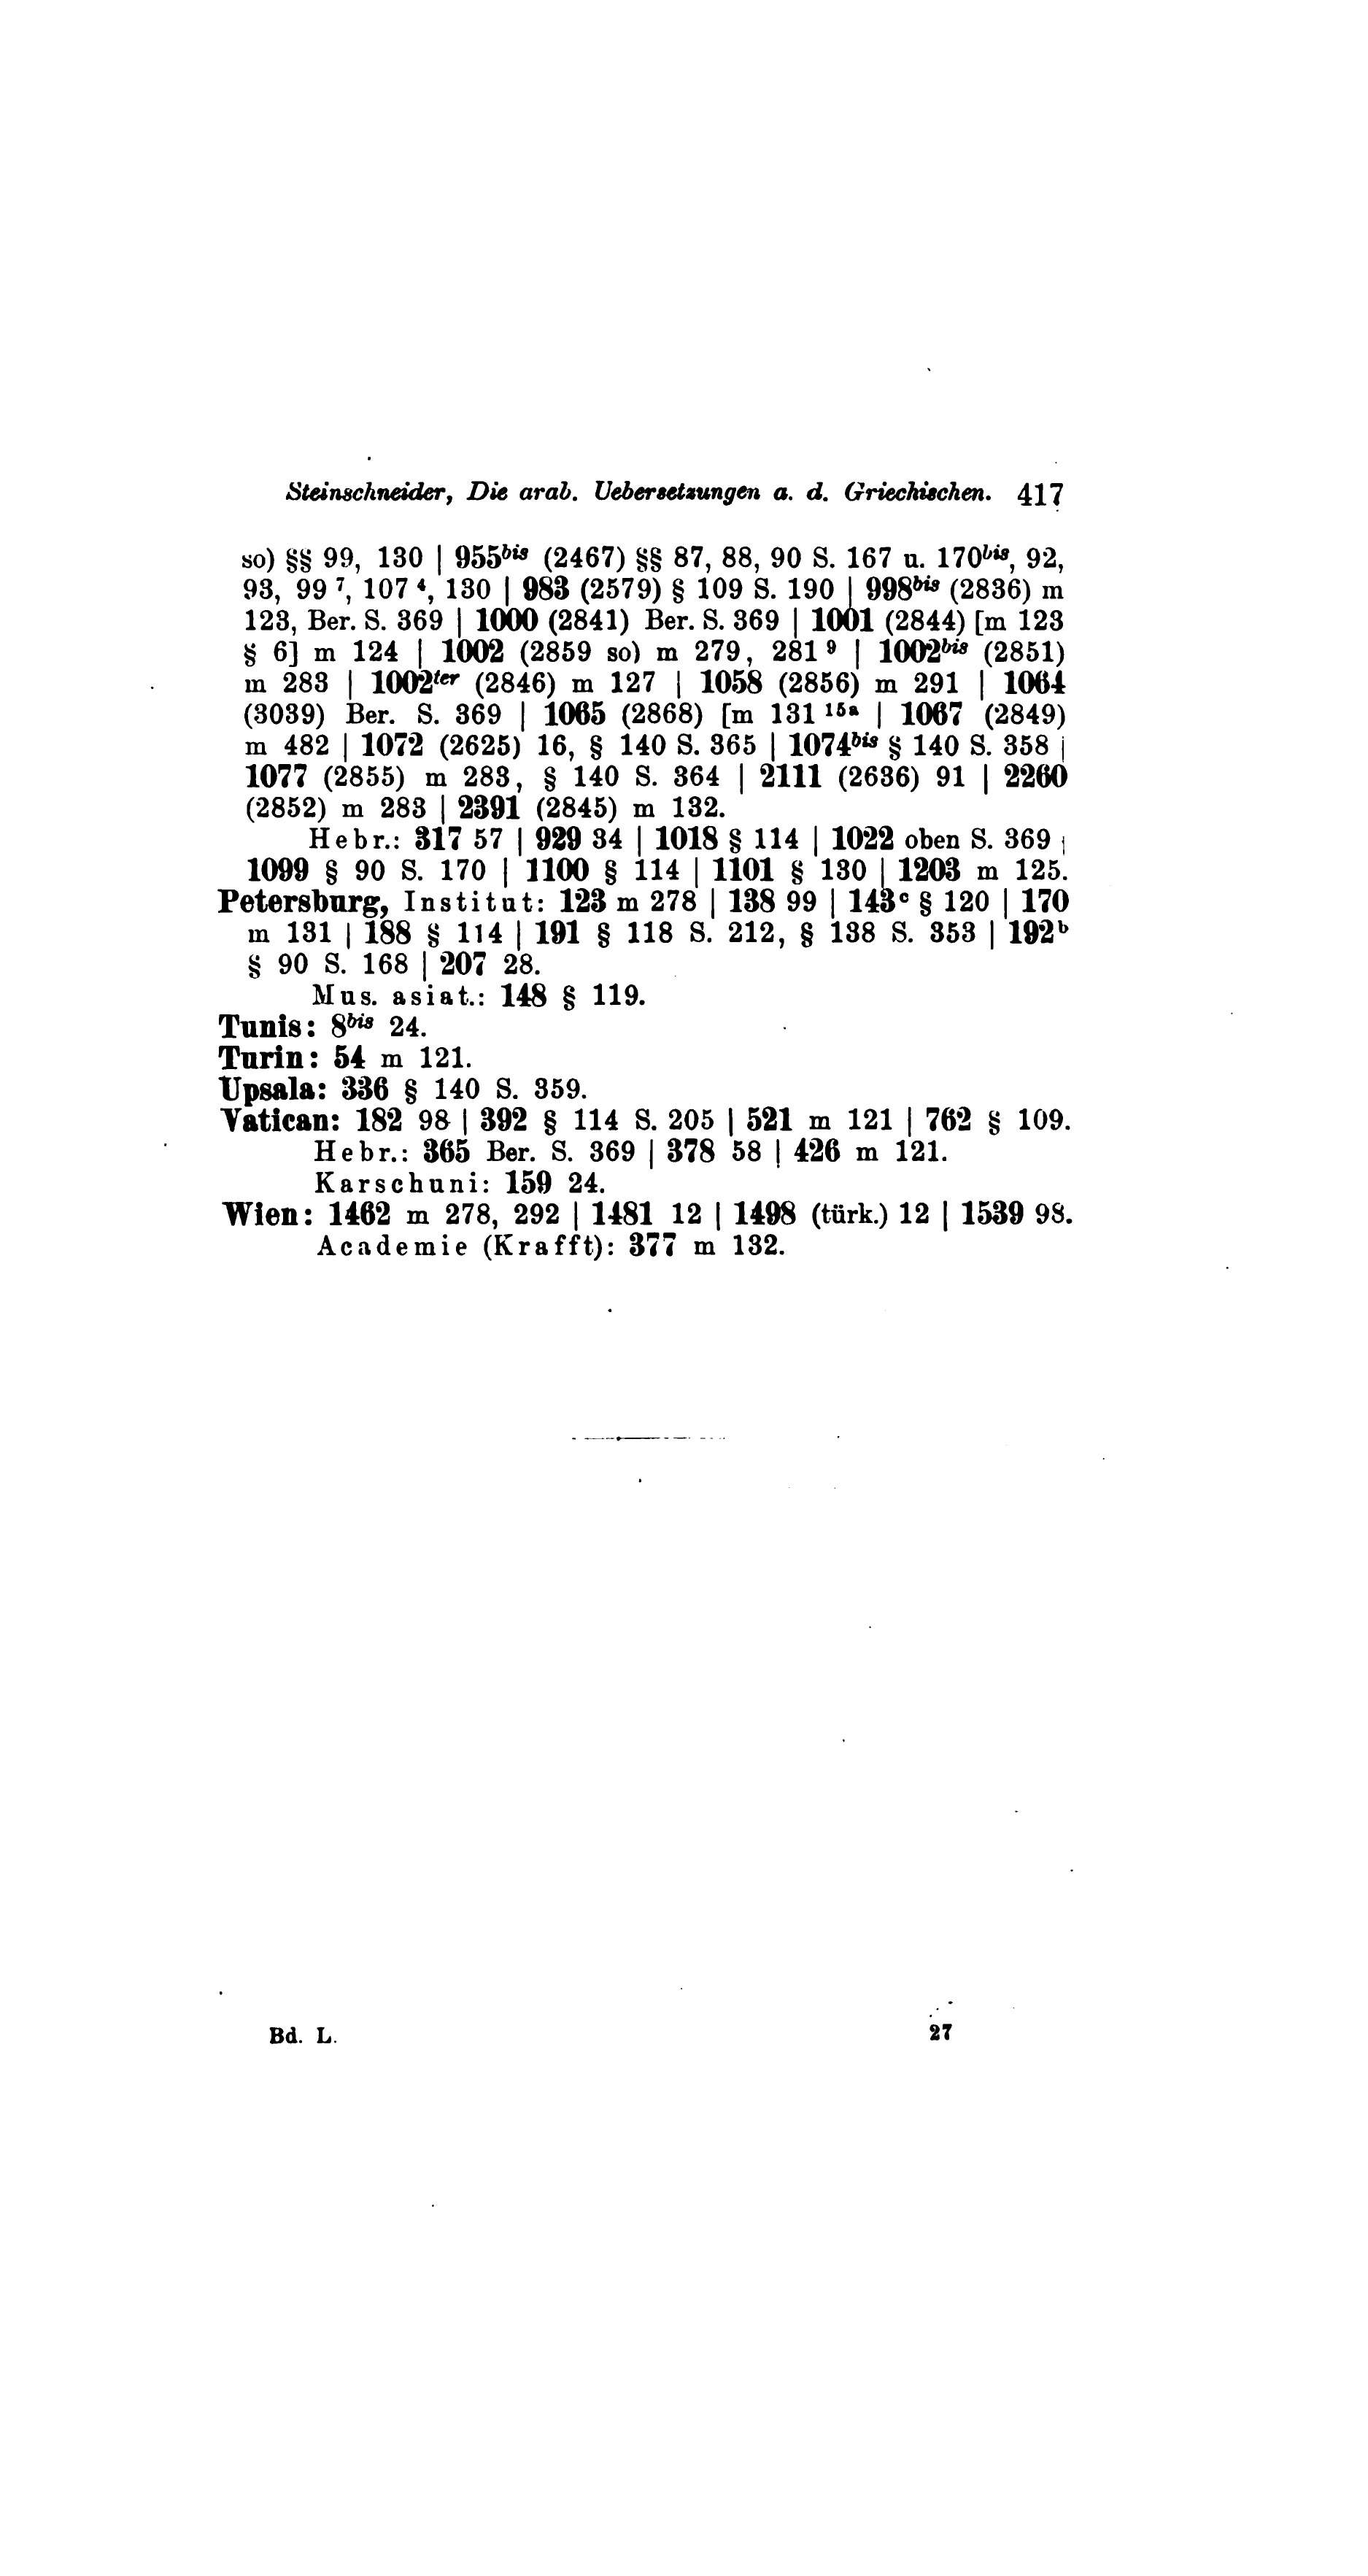 Steinschneider, Die arab. Uebersetzungen a. d. Griechischen. 417
so) §§ 99, 130 | 955bis (2467) §§ 87, 88, 90 S. 167 u. 170bis, 92,
93, 99 7, 107 4, 130 | 983 (2579) § 109 S. 190 | 998bis (2836) m
123, Ber. S. 369 | 1000 (2841) Ber. S. 369 | 1001 (2844) [m 123
§ 6] m 124 | 1002 (2859 so) m 279, 281 9 | 1002bis (2851)
m 283 | 1002ter (2846) m 127 | 1058 (2856) m 291 | 1064
(3039) Ber. S. 369 | 1065 (2868) [m 131 15a | 1067 (2849)
m 482 | 1072 (2625) 16, § 140 S. 365 | 1074bis § 140 S. 358 |
1077 (2855) m 283, § 140 S. 364 | 2111 (2636) 91 | 2260
(2852) m 283 | 2391 (2845) m 132.
Hebr.: 317 57 | 929 34 | 1018 § 114 | 1022 oben S. 369 |
1099 § 90 S. 170 | 1100 § 114 | 1101 § 130 | 1203 m 125.
Petersburg, Institut: 123 m 278 | 138 99 | 143c § 120 | 170
m 131 | 188 § 114 | 191 § 118 S. 212, § 138 S. 353 | 192b
§ 90 S. 168 | 207 28.
Mus. asiat.: 148 § 119.
Tunis: 8bis 24.
Turin: 54 m 121.
Upsala: 336 § 140 S. 359.
Vatican: 182 98 | 392 § 114 S. 205 | 521 m 121 | 762 § 109.
Hebr.: 365 Ber. S. 369 | 378 58 | 426 m 121.
Karschuni: 159 24.
Wien: 1462 m 278, 292 | 1481 12 | 1498 (türk.) 12 | 1539 98.
Academie (Krafft): 377 m 132.
Bd. L. 27